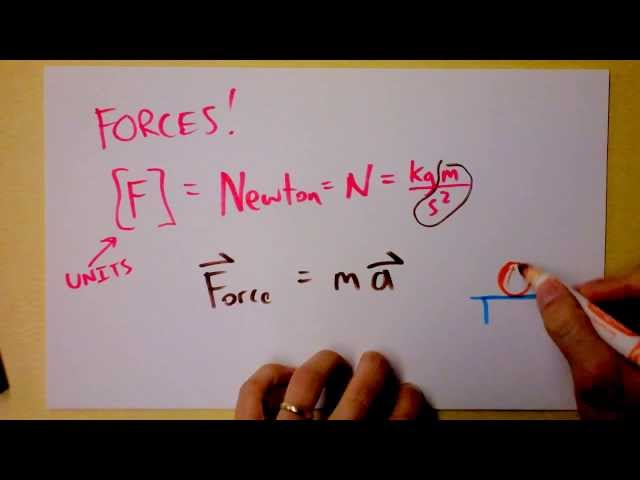 FORCES!
[F] = Newton = N = kg m/s²
UNITS
Force = ma